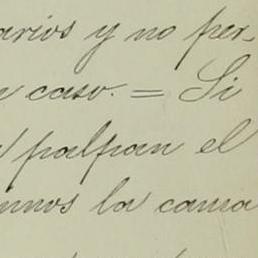 arios y no per-
caso. = Si
palpan el
nnos la cama